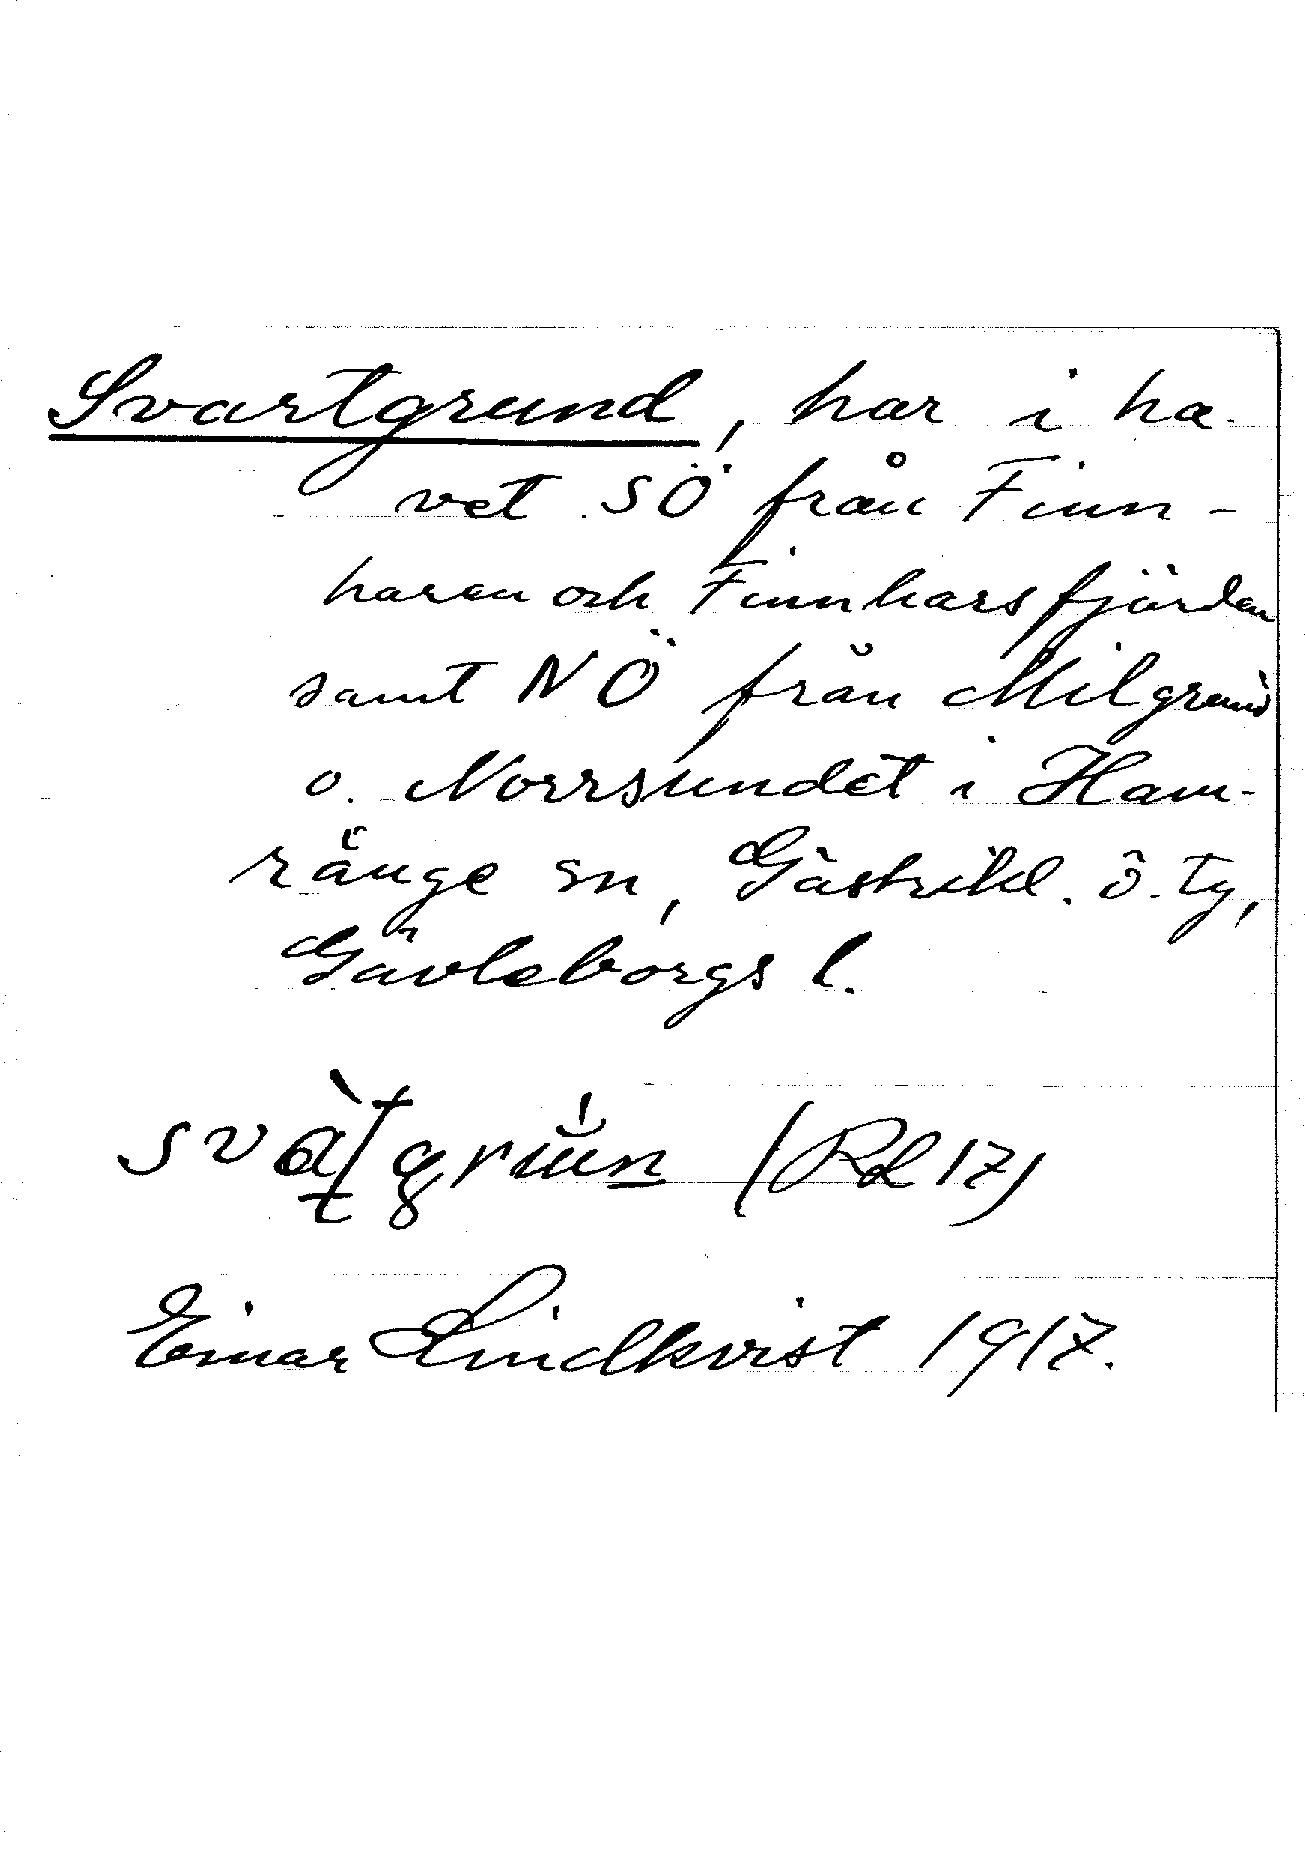 Svartgrund, har i ha-
vet SÖ från Finn-
haren och Finnharsfjärden
samt NÖ från Milgrund
o. Norrsundet i Ham-
rånge sn, Gästrikl. ö. tg,
Gävleborgs l.
(Rl 17)
Einar Lindkvist 1917.